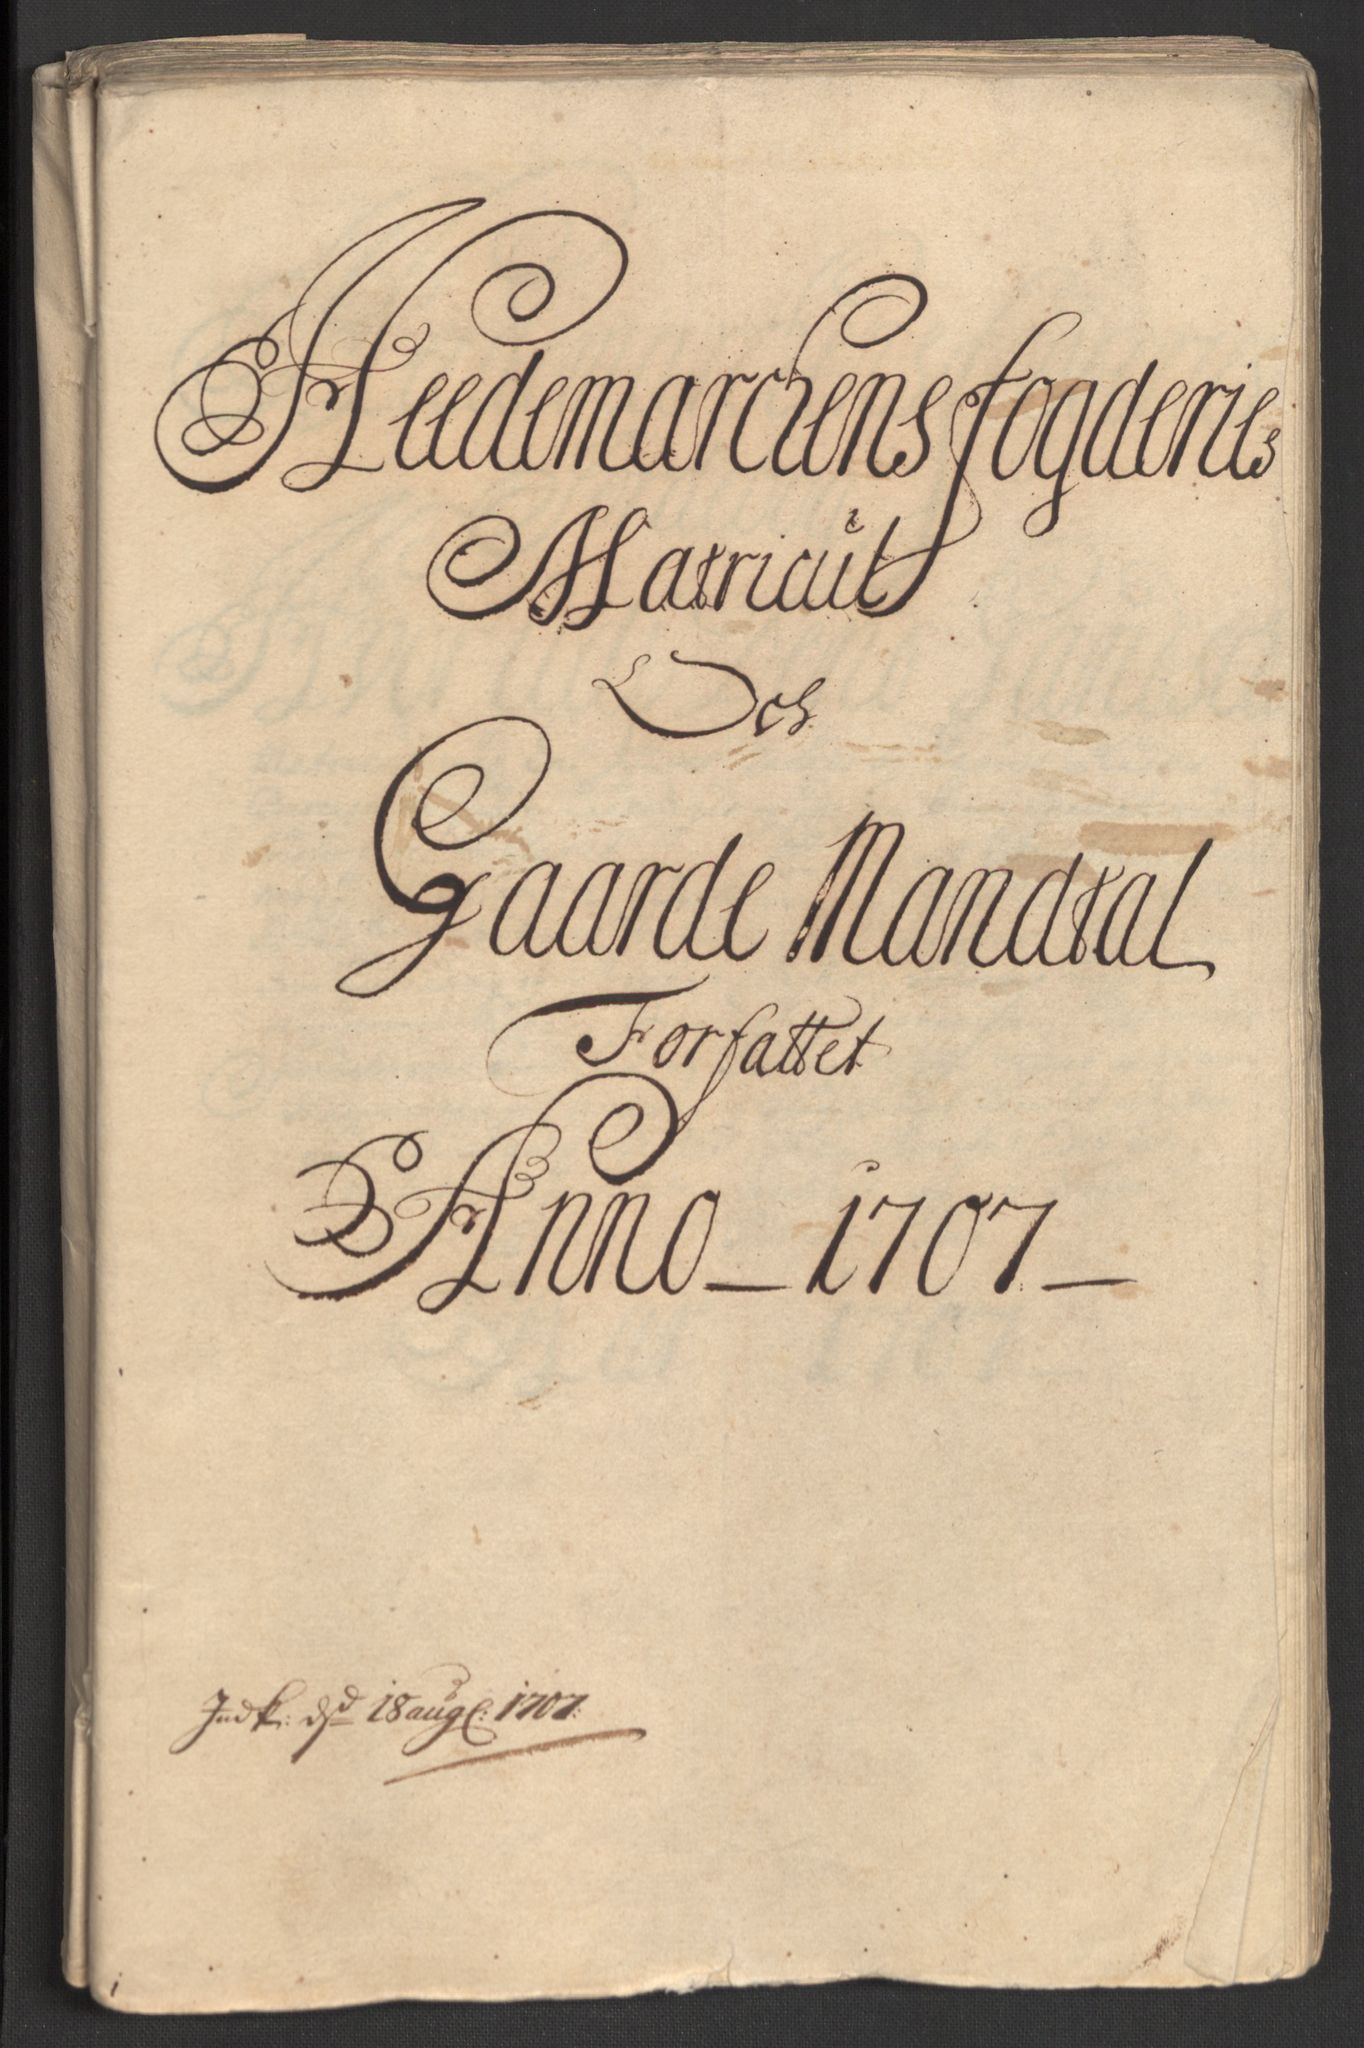 Heedemarchens fogderies
Matricul
Och
Gaarde Mandtal
Forfattet
Anno – 1707 –
Indk: dsd 18 augt: 1707: